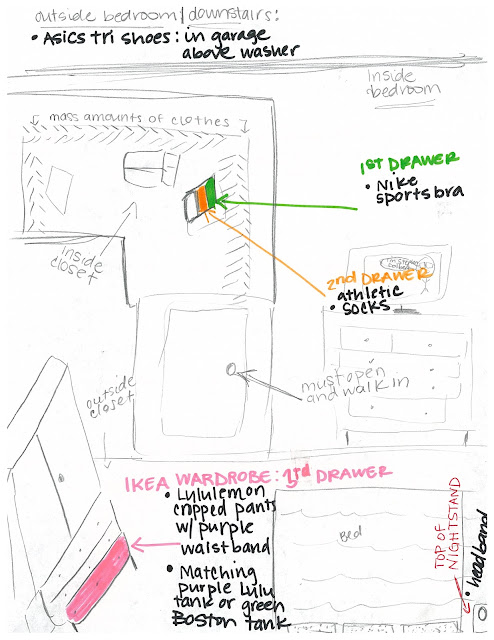 outside bedroom/downstairs:
• Asics tri shoes: in garage
above washer
Inside
bedroom
mass amounts of clothes
1ST DRAWER
• Nike
sports bra
Inside
closet
2nd DRAWER
athletic
• socks
outside
closet
must open
and walk in
IKEA WARDROBE: 3rd DRAWER
• Lululemon
cropped pants
w/ purple
waistband
• Matching
purple Lulu
tank or green
Boston tank
Bed
TOP OF
NIGHTSTAND
• headband